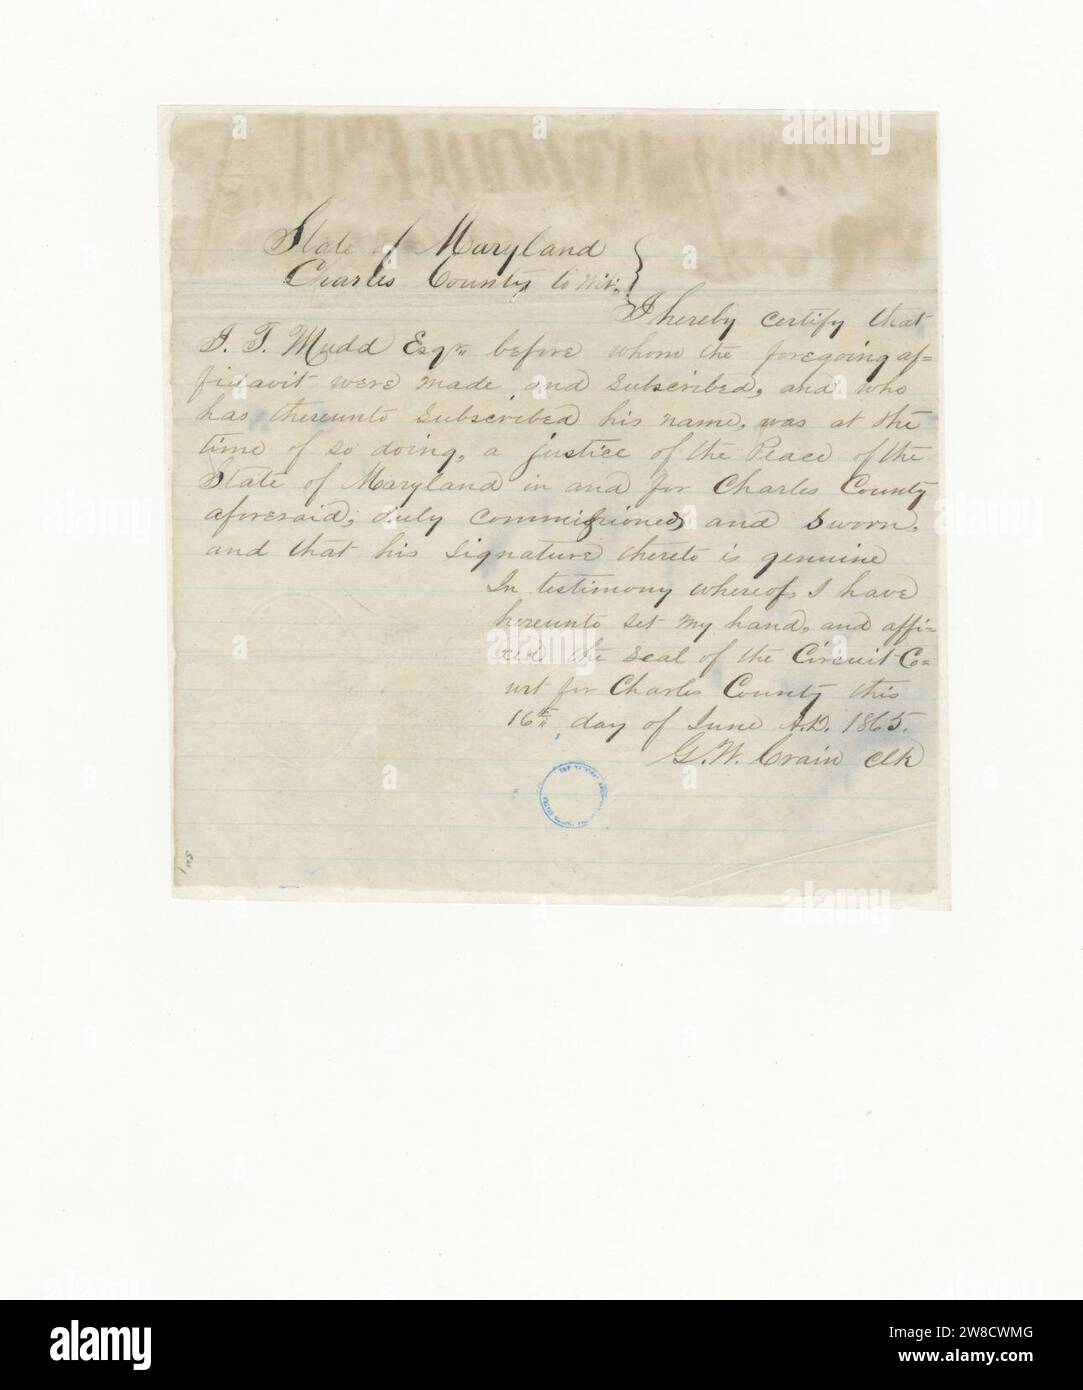 State of Maryland
Charles County to wit;
I hereby certify that
J. T. Mudd Esqr before whom the foregoing af=
fidavit were made and subscribed, and who
has thereunto subscribed his name, was at the
time of so doing, a justice of the Peace of the
State of Maryland in and for Charles County
aforesaid, duly commissioned and sworn,
and that his signature thereto is genuine
In testimony whereof, I have
hereunto set my hand, and affi=
xed the seal of the Circuit Co=
urt for Charles County this
16th day of June A.D. 1865.
G. W. Crain Clk
alamy
Image ID: 2W8CWMG
www.alamy.com